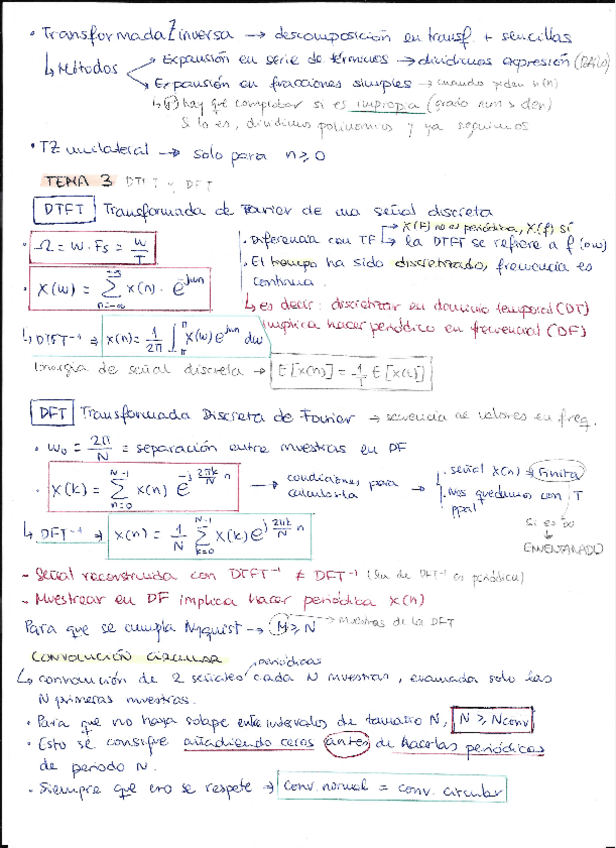 • Transformada Z inversa → descomposición en transf. + sencillas
↳ Métodos
Expansión en serie de términos → dividimos expresión
Expansión en fracciones simples → cuando piden x(n)
↳ hay que comprobar si es impropia (grado num > den)
Si lo es, dividimos polinomios y ya seguimos
• TZ unilateral → solo para n ≥ 0
TEMA 3 DTFT y DFT
DTFT Transformada de Fourier de una señal discreta
• Ω = w · Fs = w/T
• X(w) = Σ_{n=-∞}^{∞} x(n) · e^{-jwn}
↳ DTFT⁻¹ → x(n) = 1/2π ∫_{-π}^{π} X(w) e^{jwn} dw
• Diferencia con TF
X(F) no es periódica, X(f) sí
la DTFT se refiere a f (o w)
• El tiempo ha sido discretizado, frecuencia es
continua.
↳ es decir: discretizar en dominio temporal (DT)
implica hacer periódico en frecuencial (DF)
Energía de señal discreta → E[x(n)] = 1/T E[x(t)]
DFT Transformada Discreta de Fourier → secuencia de valores en freq.
• w₀ = 2π/N = separación entre muestras en DF
• X(k) = Σ_{n=0}^{N-1} x(n) e^{-j 2πk/N n} → condiciones para
calcularla
• señal x(n) Finita
• nos quedamos con T
ppal
Si es ∞
ENVENTANADO
↳ DFT⁻¹ → x(n) = 1/N Σ_{k=0}^{N-1} X(k) e^{j 2πk/N n}
- Señal reconstruida con DTFT⁻¹ ≠ DFT⁻¹ (la de DFT⁻¹ es periódica)
- Muestrear en DF implica hacer periódica x(n)
Para que se cumpla Nyquist → M ≥ N → muestras de la DFT
CONVOLUCIÓN CIRCULAR
↳ convolución de 2 señales periódicas cada N muestras, enventanada solo las
N primeras muestras.
• Para que no haya solape entre intervalos de tamaño N, N ≥ Nconv
• Esto se consigue añadiendo ceros antes de hacerlas periódicas
de periodo N.
• Siempre que eso se respete → conv. normal = conv. circular